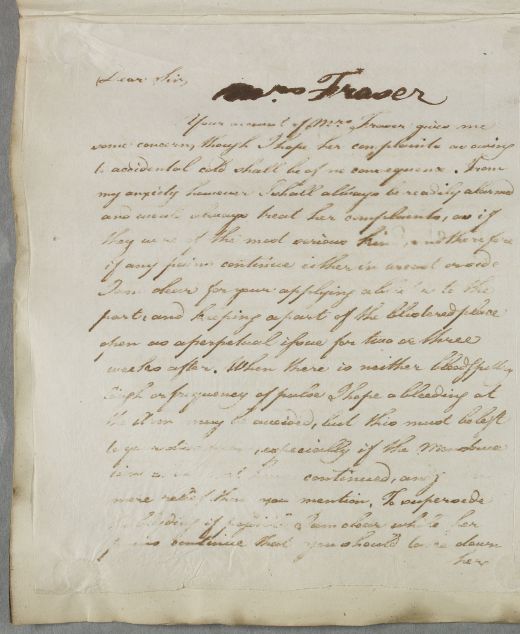 Dear Sir,
Mrs Fraser
Your account of Mrs. Fraser gives me
some concern, though I hope her complaints as owing
to accidental cold shall be of no consequence. From
my anxiety however I shall always be readily alarmed
and would always treat her complaints, as if
they were of the most serious kind, and therefore
if any pains continue either in breast or side
I am clear for your applying a blister to the
part, and keeping a part of the blistered place
open as a perpetual issue for two or three
weeks after. When there is neither bloodspitting
cough or frequency of pulse I hope a bleeding at
the Arm may be avoided, but this must be left
to your especially if the Menstrua
continued, any
more than you mention. To supersede
bleeding if possible I am clear while her
pains continue that you should take down
her